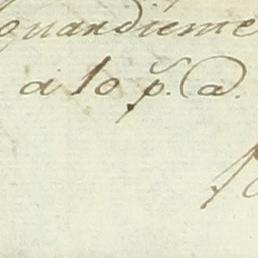 quandieme
a 10 p. a.